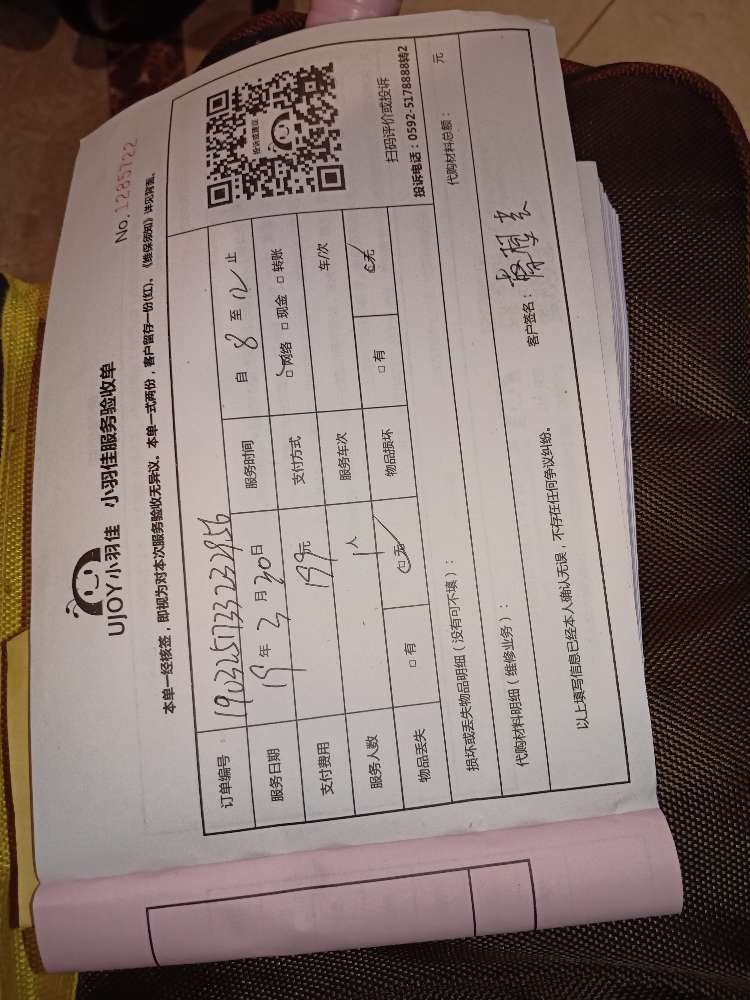 No.1285722
UJOY小羽佳 小羽佳服务验收单
本单一经核签，即视为对本次服务验收无异议。本单一式两份，客户留存一份(红)，《维保须知》详见背面。
订单编号：19032573323 956
服务日期 19年3月30日 服务时间 自 8 至 12 止
支付费用 199元 支付方式 □网络 □现金 □转账
服务人数 1人 服务车次 车/次
物品丢失 □有 □无 物品损坏 □有 □无
投诉或建议
扫码评价或投诉
投诉电话：0592-5178888转2
损坏或丢失物品明细（没有可不填）：
代购材料明细（维修业务）： 代购材料总额： 元
以上填写信息已经本人确认无误，不存在任何争议纠纷。
客户签名：